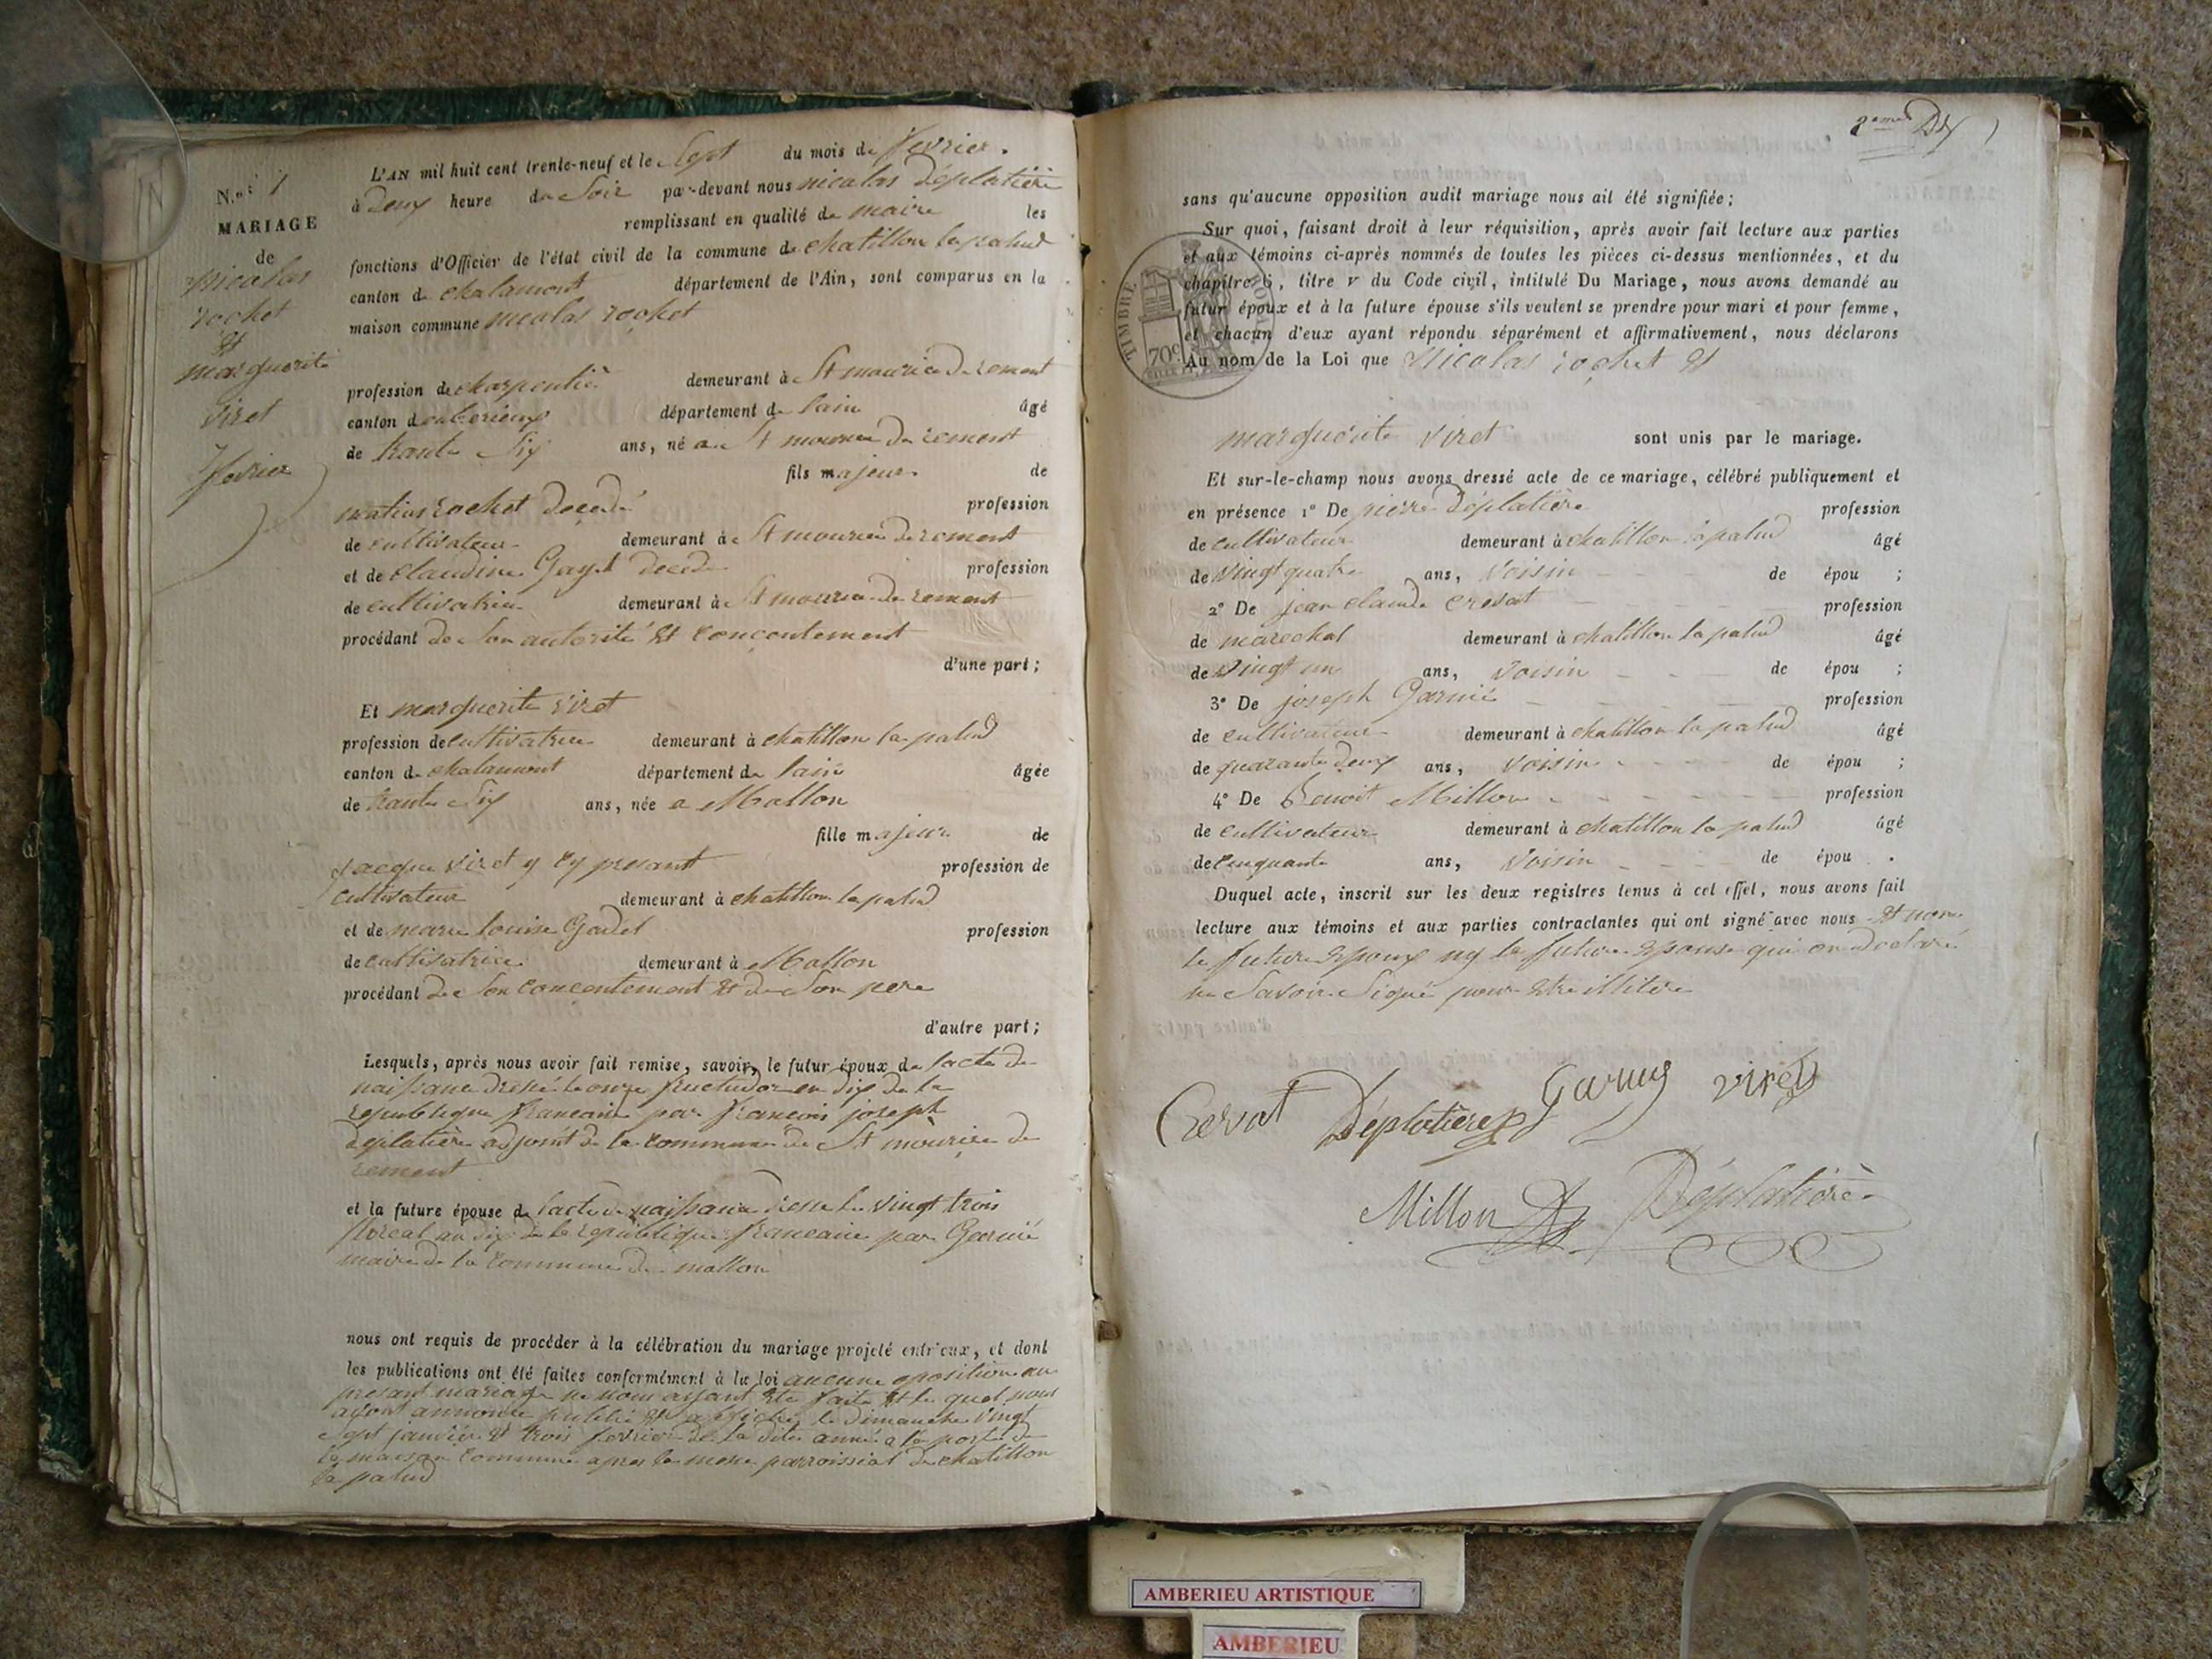 N.o 1
MARIAGE
de
Nicolas
rochet
et
marguerite
viret
7 fevrier
L'AN mil huit cent trente-neuf et le Sept du mois de fevrier.
à Deux heure du Soir par-devant nous nicolas Déplatière
remplissant en qualité de maire les
fonctions d'Officier de l'état civil de la commune de chatillon la palud
canton de chalamont département de l'Ain, sont comparus en la
maison commune nicolas rochet
profession de charpentiè demeurant à St mourice De rement
canton d'emberieux département de lain âgé
de trante Six ans, né a St mourice De rement
fils majeur de
rochet Decedé profession
de cultivateur demeurant à St mourice De remens
et de Claudine Gayet decede profession
de cultivatrice demeurant à St mourice de remens
procédant de Son autorité et conçentement
d'une part;
Et marguerite viret
profession de cultivatrice demeurant à chatillon la palud
canton de chalamont département de lain âgée
de trante Six ans, née a Mollon
fille majeur de
jacque viret y cy presant profession de
cultivateur demeurant à chatillon la palud
et de marie louise Godet profession
de cultivatrice demeurant à Mollon
procédant de Son conçentement et de Son pere
d'autre part;
Lesquels, après nous avoir fait remise, savoir, le futur époux de lacte de
naissance dressé le onze fructidor en dix de la
republique francaise par francois joseph
deplatière adjoint de la commune de St mourice de
rement
et la future épouse de lacte de naissance dressé le vingt trois
floreal an dix de la republique francaise par Garnié
maire de la commune de mollon
nous ont requis de procéder à la célébration du mariage projeté entr'eux, et dont
les publications ont été faites conformément à la loi aucune oposition au
presant mariage ne nous ayant ete faite et le quel nous
ayont annoncé publié et affiché le dimanche vingt
sept janvier et trois fevrier de la dite anné a la porte de
la maison commune apres la messe parroissial de chatillon
la palud
2eme Dx
sans qu'aucune opposition audit mariage nous ait été signifiée;
Sur quoi, faisant droit à leur réquisition, après avoir fait lecture aux parties
et aux témoins ci-après nommés de toutes les pièces ci-dessus mentionnées, et du
chapitre 6, titre v du Code civil, intitulé Du Mariage, nous avons demandé au
futur époux et à la future épouse s'ils veulent se prendre pour mari et pour femme,
et chacun d'eux ayant répondu séparément et affirmativement, nous déclarons
Au nom de la Loi que Nicolas rochet et
TIMBRE ROYAL
70c
marguerite viret sont unis par le mariage.
Et sur-le-champ nous avons dressé acte de ce mariage, célébré publiquement et
en présence 1° De pierre Déplatière profession
de cultivateur demeurant à chatillon la palud âgé
de vingt quatre ans, voisin de épou ;
2° De jean claude crevat profession
de marechal demeurant à chatillon la palud âgé
de vingt un ans, voisin de épou ;
3° De joseph Garnié profession
de cultivateur demeurant à chatillon la palud âgé
de quarante deux ans, voisin de épou ;
4° De Benoit Millon profession
de cultivateur demeurant à chatillon la palud âgé
de cinquante ans, voisin de épou .
Duquel acte, inscrit sur les deux registres tenus à cet effet, nous avons fait
lecture aux témoins et aux parties contractantes qui ont signé avec nous et non
le future epoux ny la future epouse qui on declaré
ne Savoir Signé pour etre illitere
Crevat Déplatière Garnie viret
Millon Déplatière
AMBERIEU ARTISTIQUE
AMBERIEU